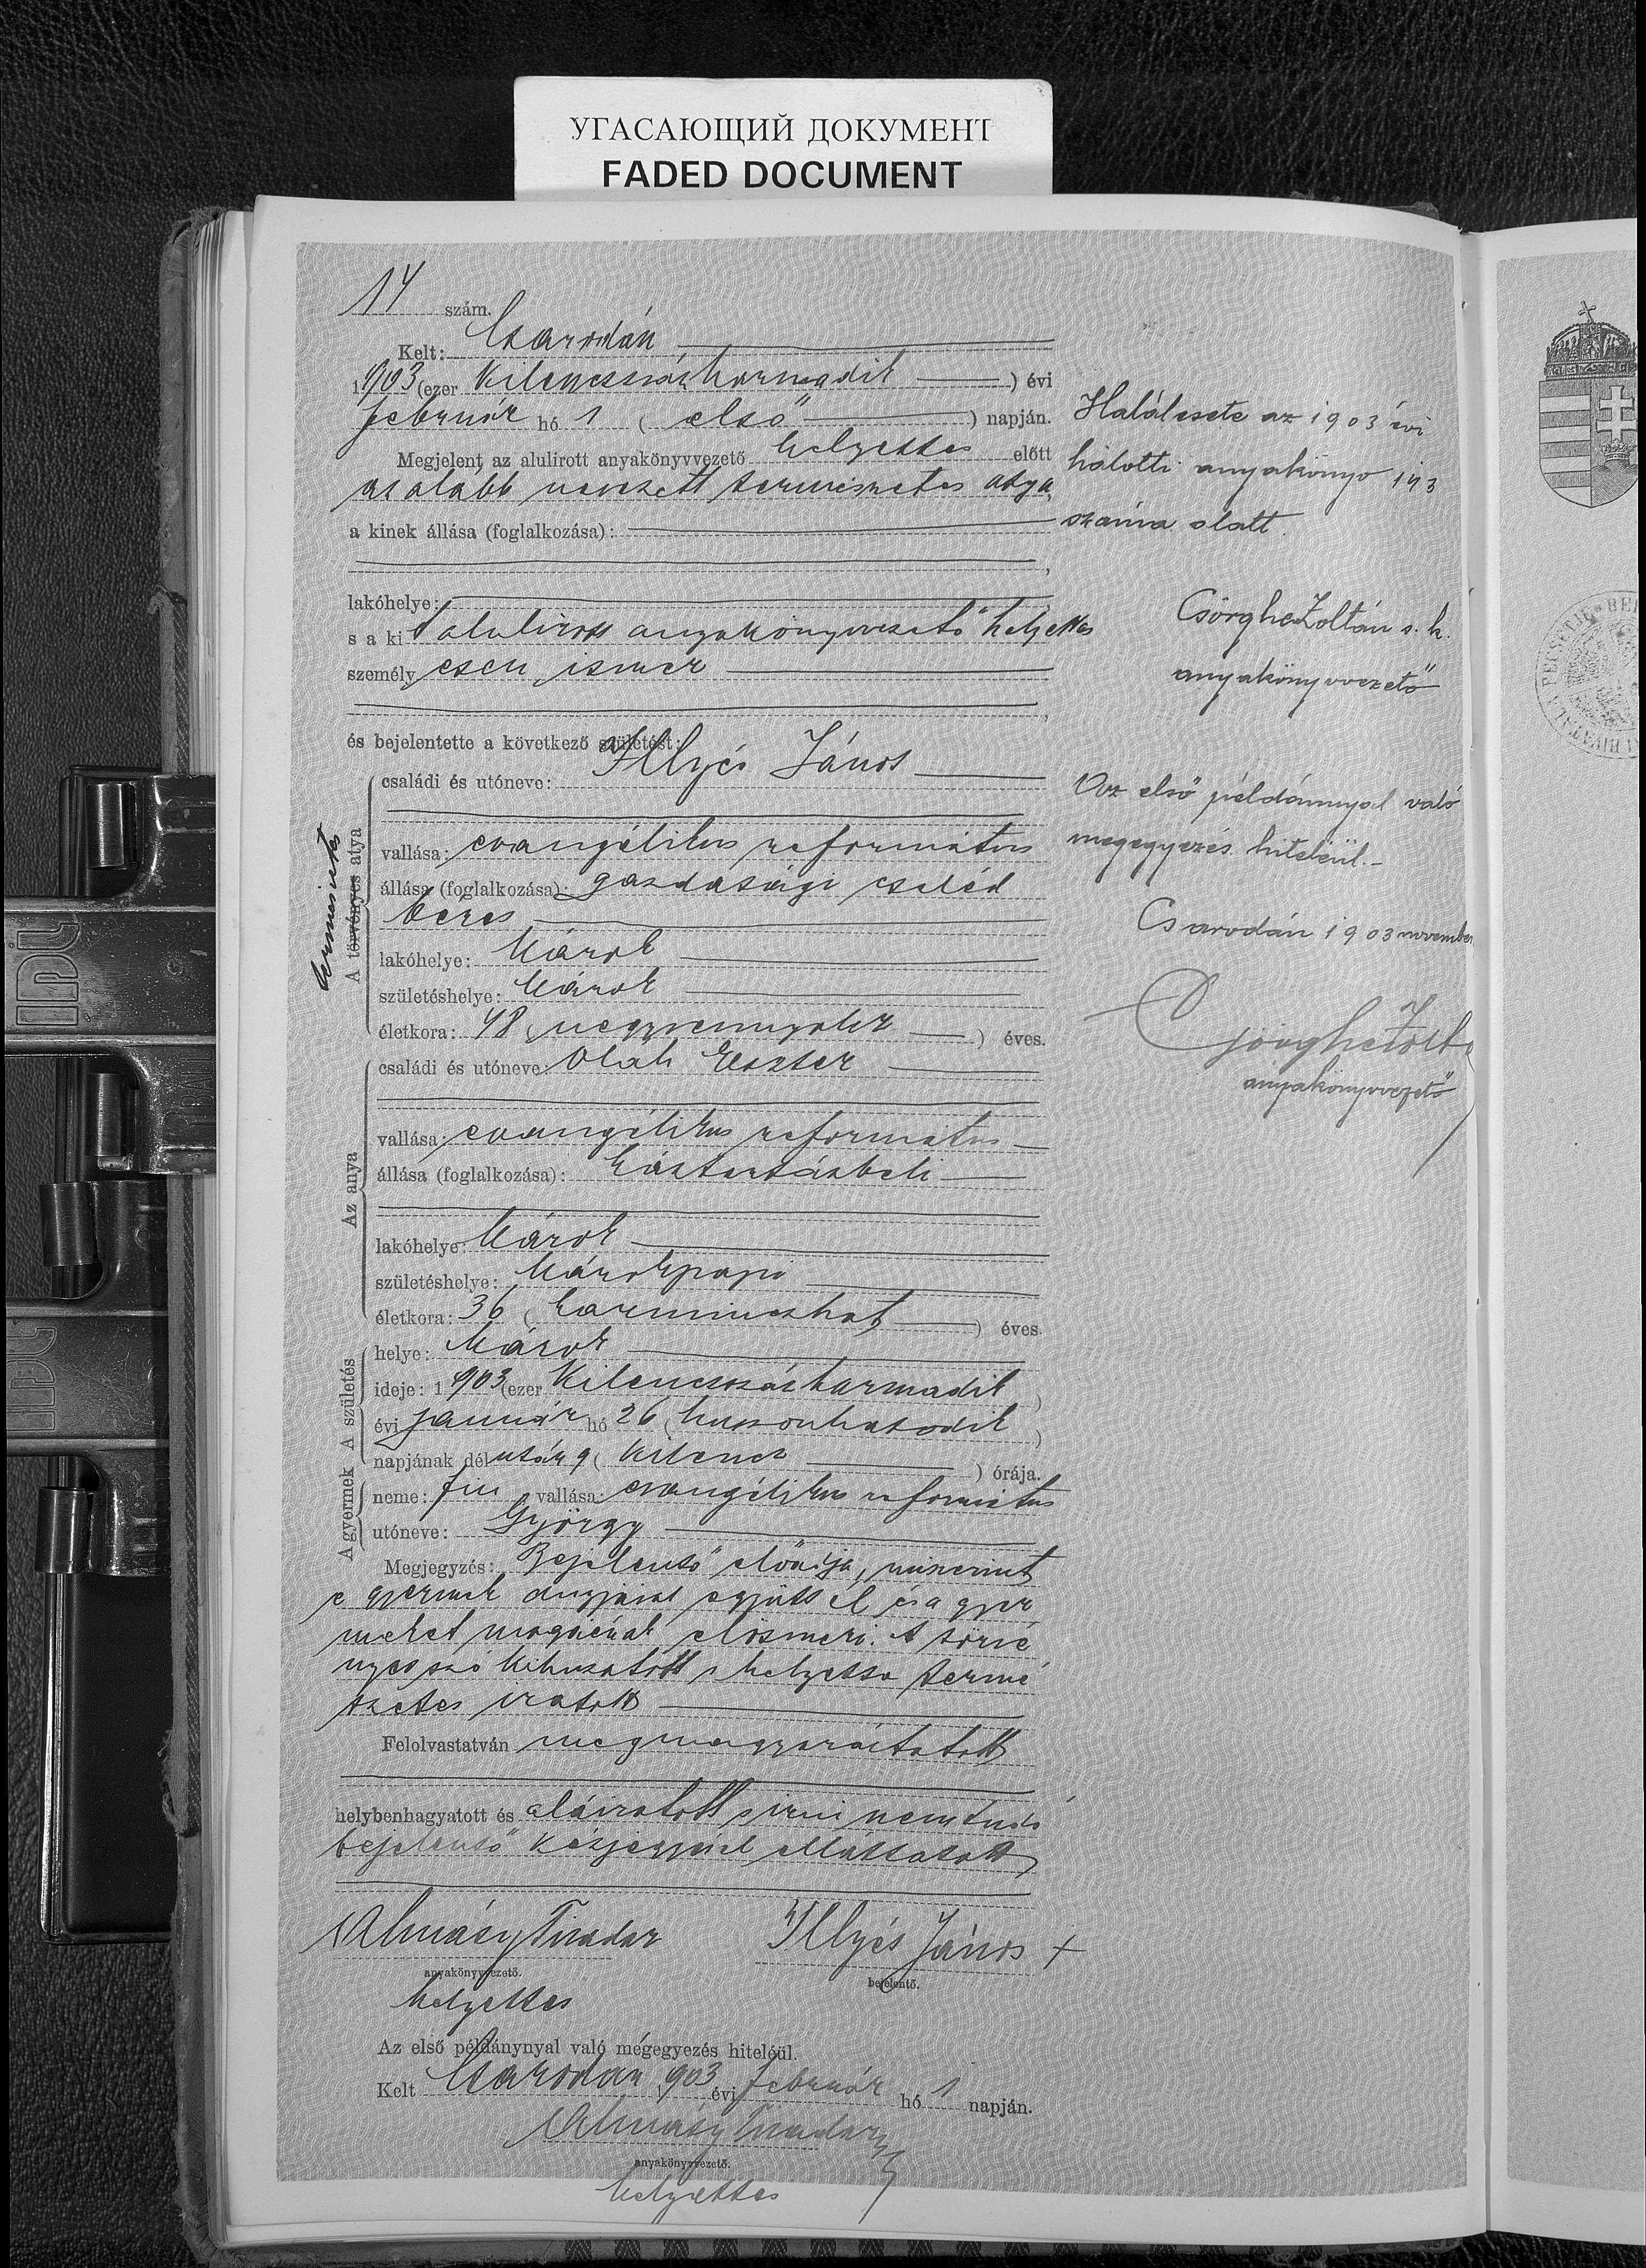 УГАСАЮЩИЙ ДОКУМЕНТ
FADED DOCUMENT
14 szám.
Kelt: Csarodán
1903 (ezer kilencszázharmadik) évi
február hó 1 (első) napján.
Megjelent az alulirott anyakönyvvezető helyettes előtt
az alább nevezett természetes atya,
a kinek állása (foglalkozása):
lakóhelye:
s a ki alulirott anyakönyvvezető helyettes
személyesen ismer
és bejelentette a következő születést:
természetes
A törvényes atya
családi és utóneve: Illyés János
vallása: evangélikus református
állása (foglalkozása): gazdasági cseléd
béres
lakóhelye: Márok
születéshelye: Márok
életkora: 48 (negyvennyolcz) éves.
Az anya
családi és utóneve: Oláh Eszter
vallása: evangélikus református
állása (foglalkozása): háztartásbeli
lakóhelye: Márok
születéshelye: Márokpapi
életkora: 36 (harminczhat) éves.
A születés
helye: Márok
ideje: 1903 (ezer kilencszázharmadik)
évi január hó 26 (huszonhatodik)
napjának délután 9 (kilencz) órája.
A gyermek
neme: fiu, vallása: evangélikus református
utóneve: György
Megjegyzés: Bejelentő előadja, miszerint
e gyermek anyjával együtt él és a gyer
meket magáénak elösmeri. A törvé
nyes szó kihuzatott s helyette termé
szetes iratott
Felolvastatván megmagyaráztatott
helybenhagyatott és aláiratott s irni nem tudó
bejelentő kézjegyével elláttatott
Almásy Tivadar Illyés János +
anyakönyvvezető. bejelentő.
helyettes
Az első példánynyal való mégegyezés hiteléül.
Kelt Csarodán, 903 évi február hó 1 napján.
Almásy Tivadar
anyakönyvvezető.
helyettes
Halálesete az 1903 évi
halotti anyakönyv 143
száma alatt.
Csörghe Zoltán s. k.
anyakönyvvezető
Az első példánnyal való
megegyezés hiteléül.-
Csarodán 1903 november
Csörghe Zolt
anyakönyvvezető